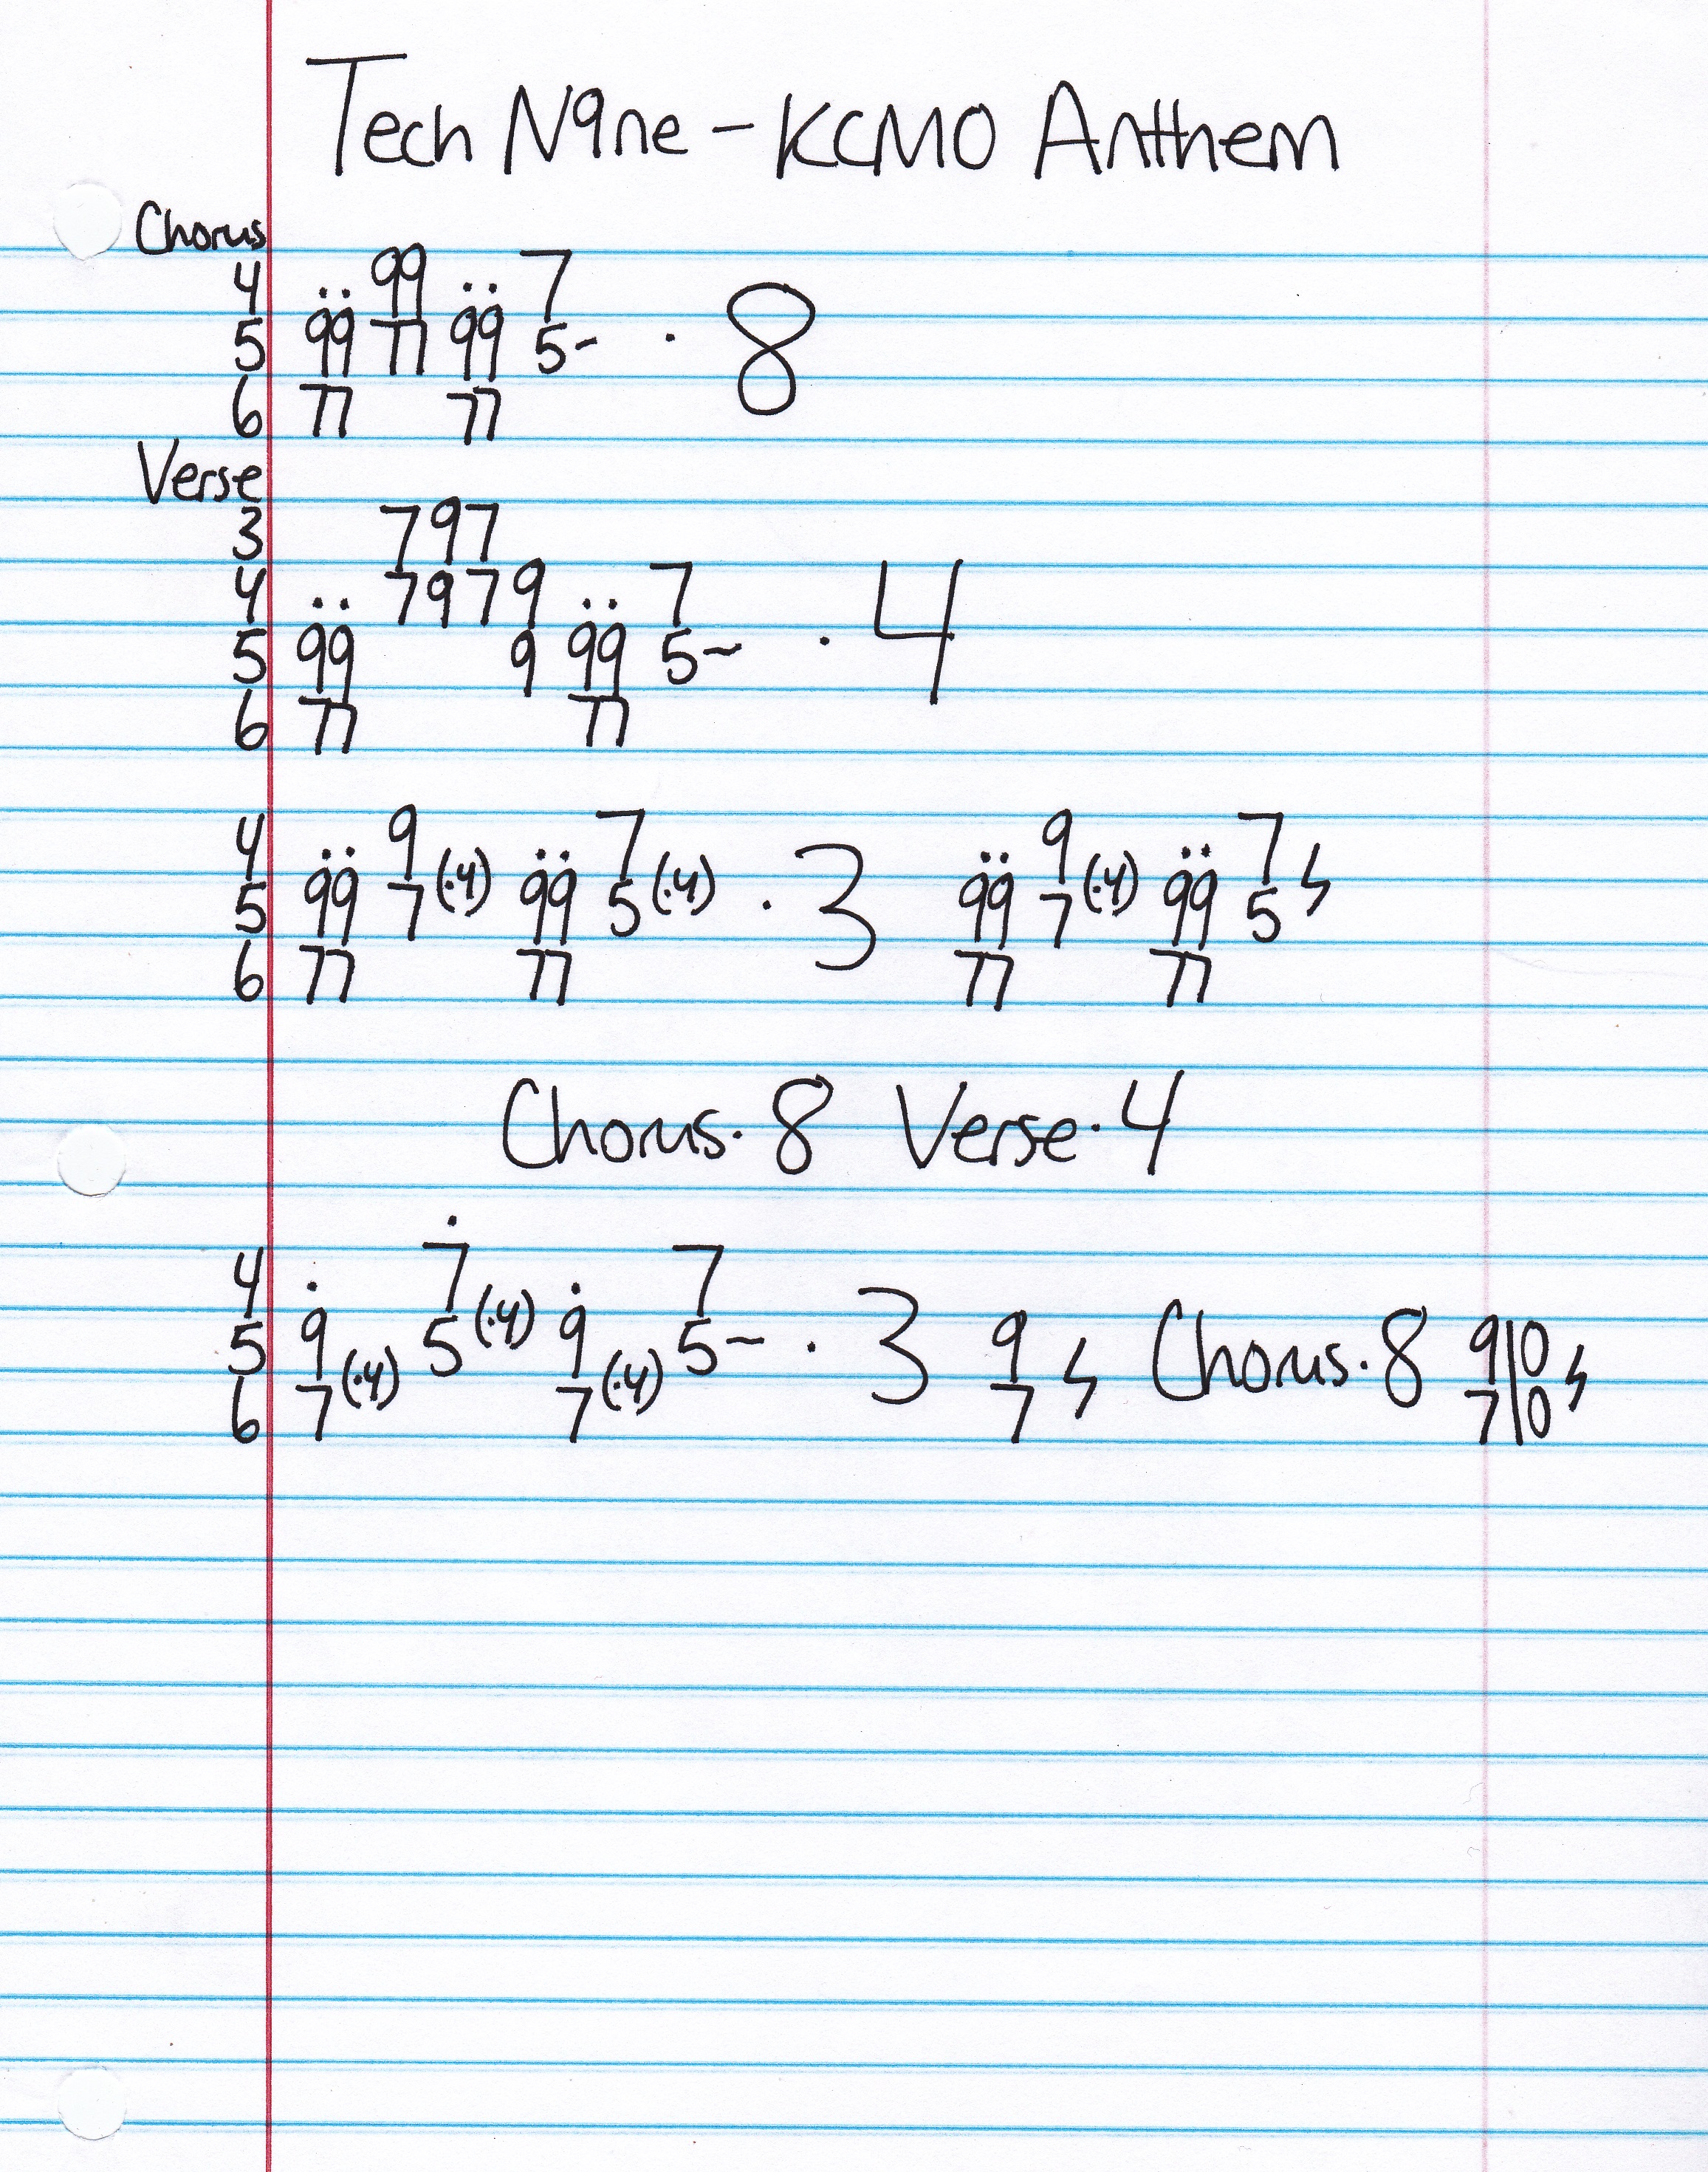 Tech N9ne - KCMO Anthem
Chorus
4 .. 99 .. 7
5 99 77 99 5~ · 8
6 77 77
Verse
3 797
4 .. 7979 .. 7
5 99 9 99 5~ · 4
6 77 77
4 .. 9 .. 7 .. 9 .. 7
5 99 7(·4) 99 5(·4) · 3 99 7(·4) 99 5 ϟ
6 77 77 77 77
Chorus·8 Verse·4
4 · 7̇ · 7
5 9 (·4) 5(·4) 9 (·4) 5~ · 3 9 ϟ Chorus·8 9|0 ϟ
6 7 7 7 7|0